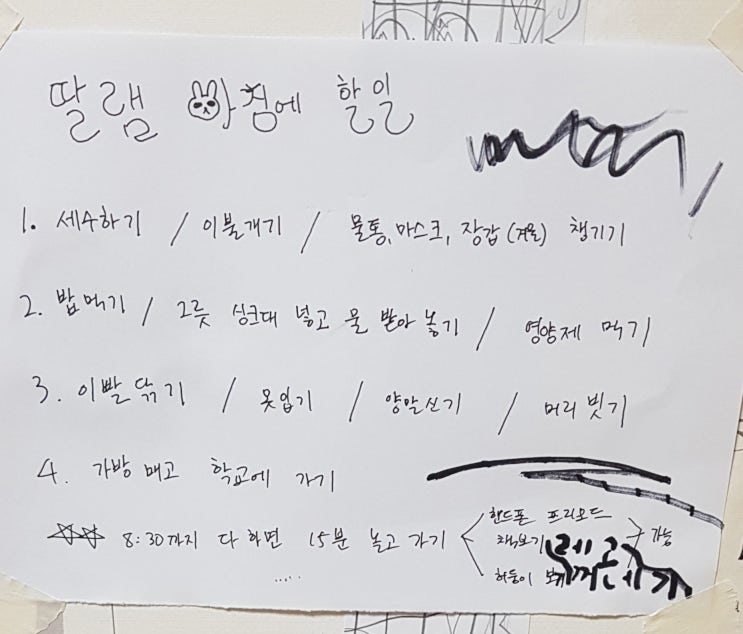 딸램 아침에 할일
1. 세수하기 / 이불개기 / 물통, 마스크, 장갑 (겨울) 챙기기
2. 밥먹기 / 그릇 싱크대 넣고 물 받아 놓기 / 영양제 먹기
3. 이빨 닦기 / 옷입기 / 양말신기 / 머리 빗기
4. 가방 매고 학교에 가기
☆☆ 8:30까지 다 하면 15분 놀고 가기
핸드폰 프리모드
책보기
가능
레고
.....